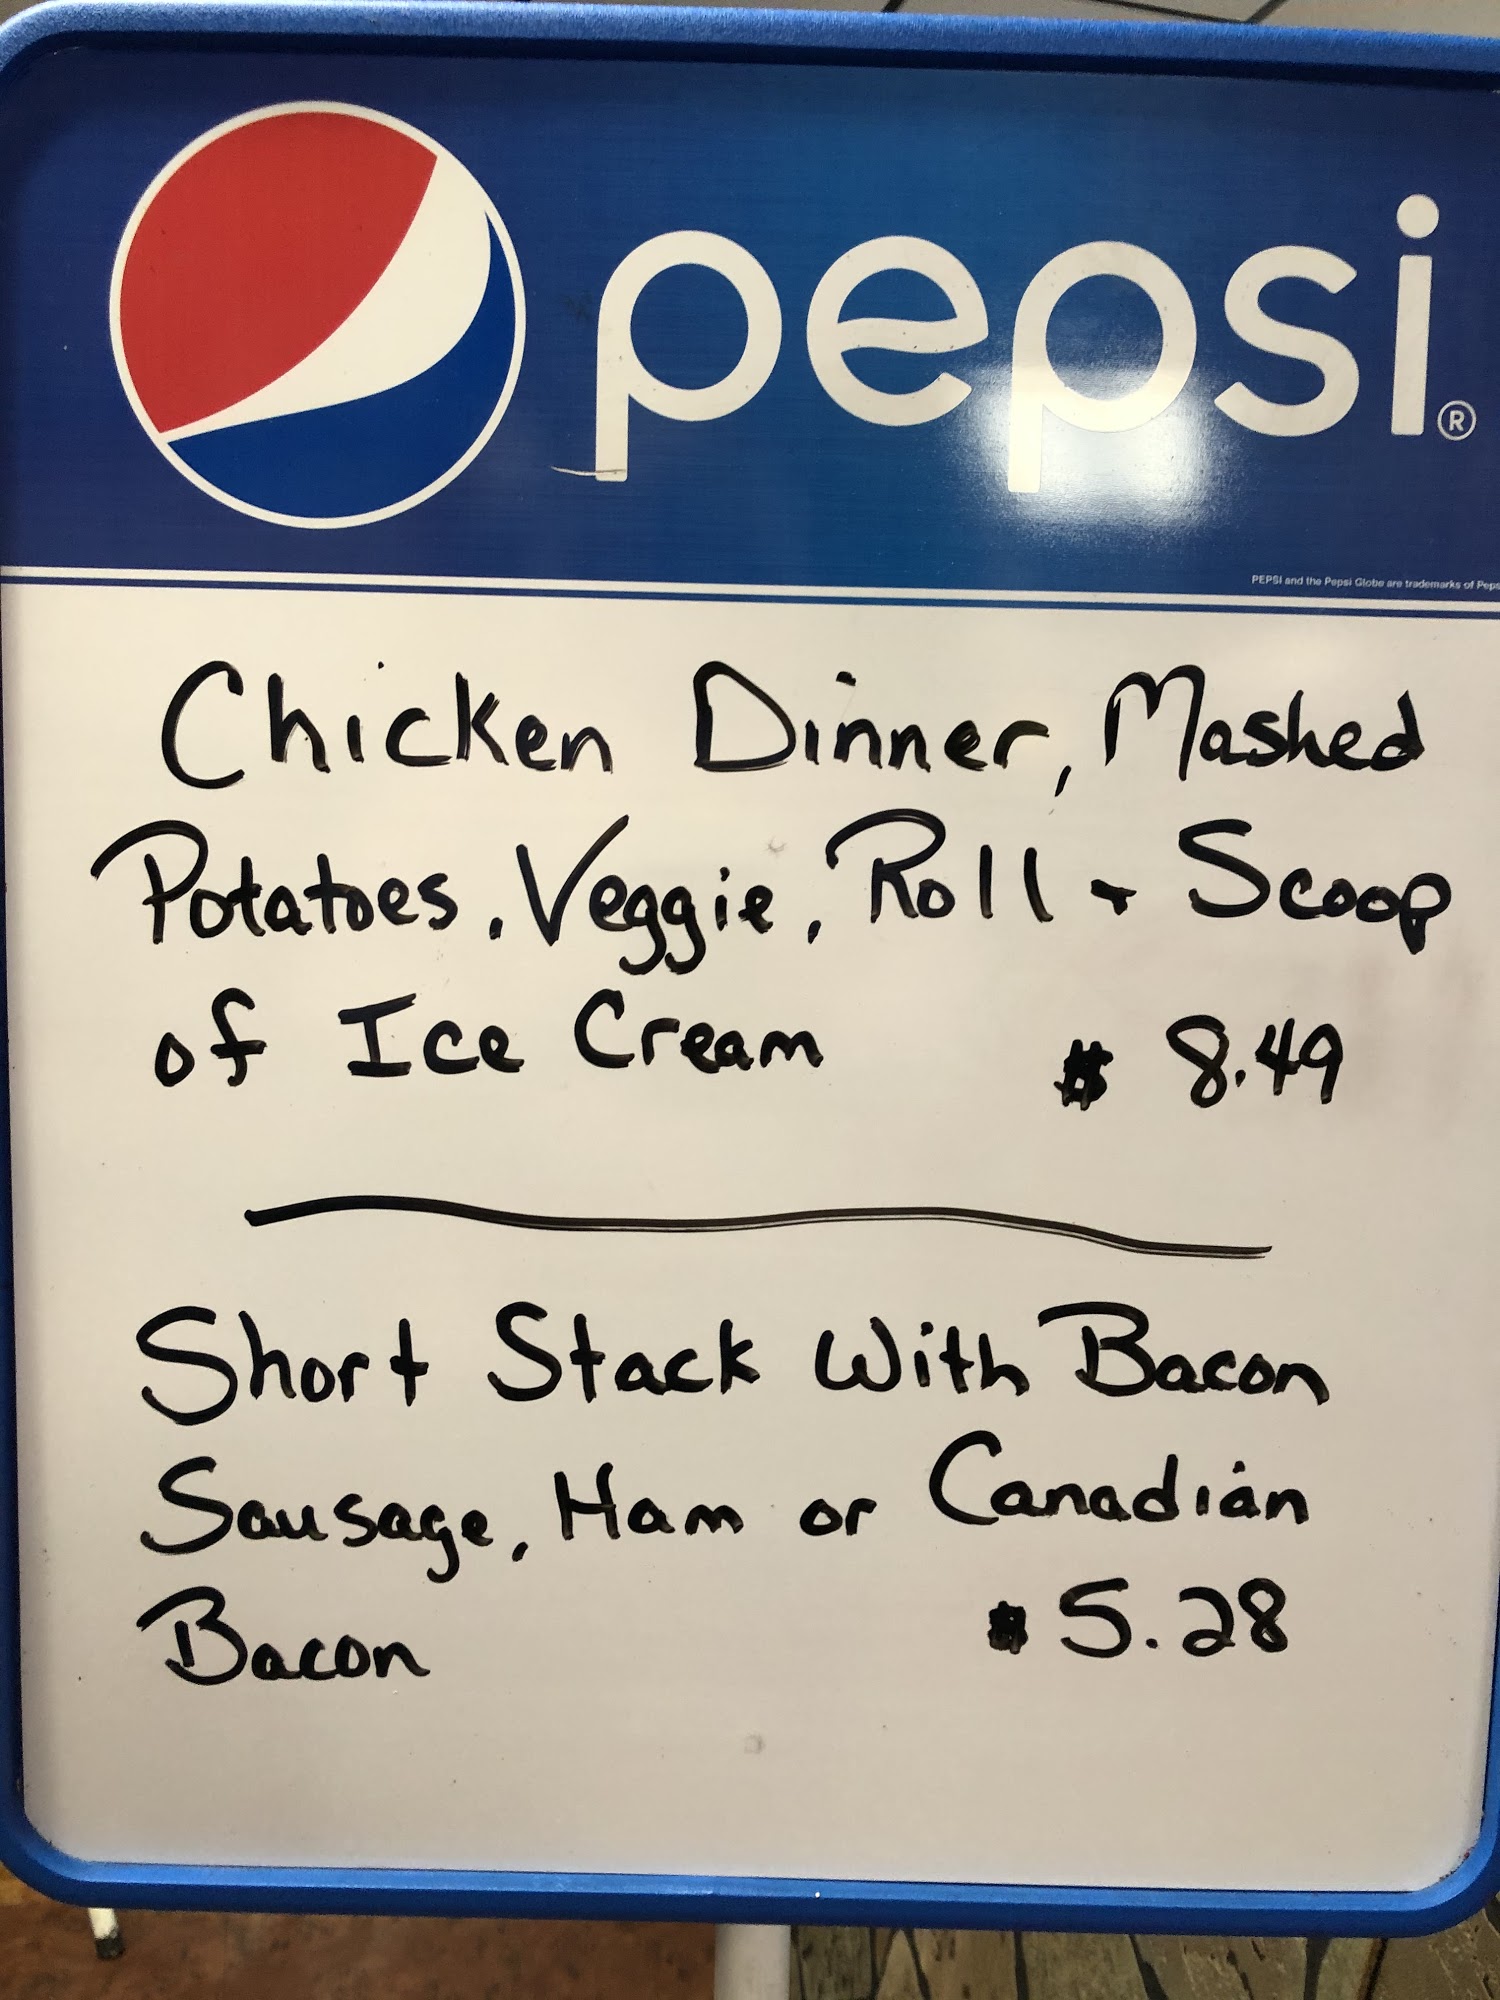 pepsi®
PEPSI and the Pepsi Globe are trademarks of
Chicken Dinner, Mashed
Potatoes, Veggie, Roll + Scoop
of Ice Cream $ 8.49
Short Stack With Bacon
Sausage, Ham or Canadian
Bacon $ 5.28